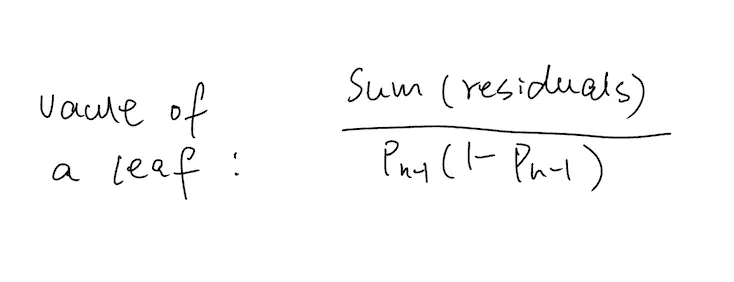 Vaule of
a leaf :
Sum (residuals)
Pn-1 (1- Pn-1)